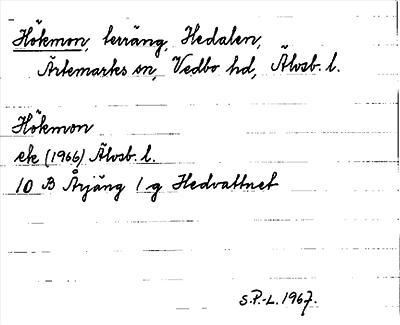 Hökmon, terräng, Hedalen,
Ärtemarks sn, Vedbo hd, Älvsb. l.
Hökmon
ek (1966) Älvsb. l.
10 B Årjäng 1 g Hedvattnet
S.P.-L. 1967.